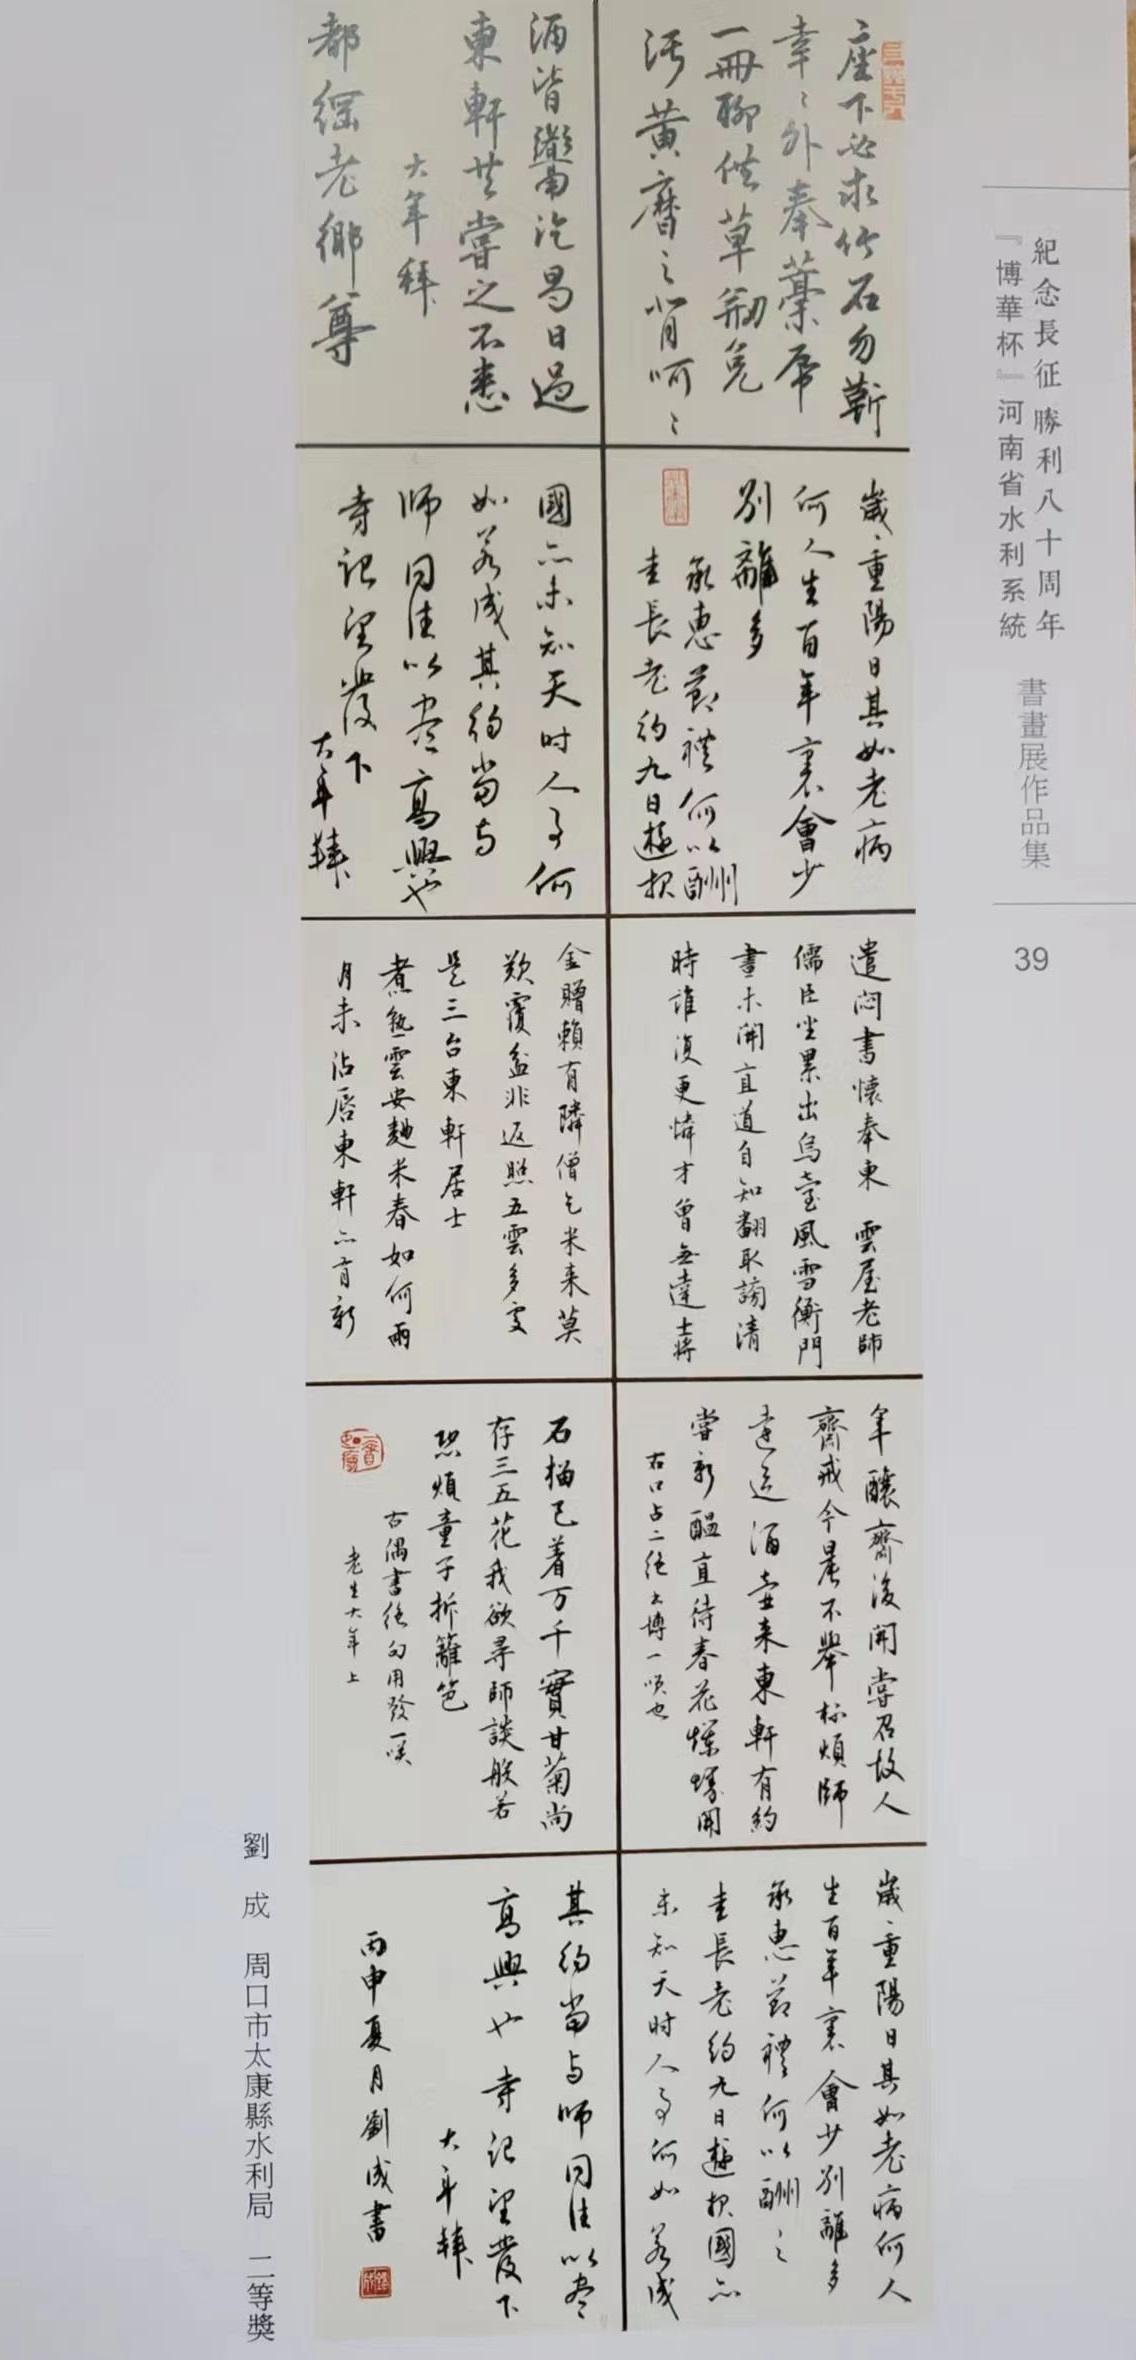 紀念長征勝利八十周年
『博華杯』河南省水利系統
書畫展作品集
39
座下必求作石勿靳
幸〻外奉藁席
一冊聊供草剏免
污黄麿之背呵〻
酒皆 日過
東軒共嘗之不悉
大年拜
都綱老鄉尊
歲〻重陽日其如老病
何人生百年裏會少
別離多
承惠節禮何以酬
圭長老約九日遊
國亦未知天时人事何
如若成其約當与
师同往以盡高興也
寺記望發下
大年拜
遣悶書懷奉東 雲屋老師
儒臣坐累出烏臺風雪衡門
晝未開直道自知翻取謗清
時誰復更憐才曾無達士將
金贈賴有隣僧乞米来莫
歎覆盆非返照五雲多處
是三台東軒居士
煮熟雲安麯米春如何兩
月未沾唇東軒亦有新
年釀齋後開嘗召故人
齋戒今晨不舉杯煩師
走送酒壺来東軒有約
嘗新醞直待春花爛熳開
右口占二絕上博一咲也
石榴已着万千實甘菊尚
存三五花我欲尋師談般若
恐煩童子拆籬笆
右偶書絕句用發一咲
老生大年上
歲〻重陽日其如老病何人
生百年裏會少別離多
承惠節禮何以酬之
圭長老約九日遊 國亦
未知天时人事何如若成
其約當与师同往以盡
高興也寺記望發下
大年拜
丙申夏月劉成書
劉成 周口市太康縣水利局 二等獎